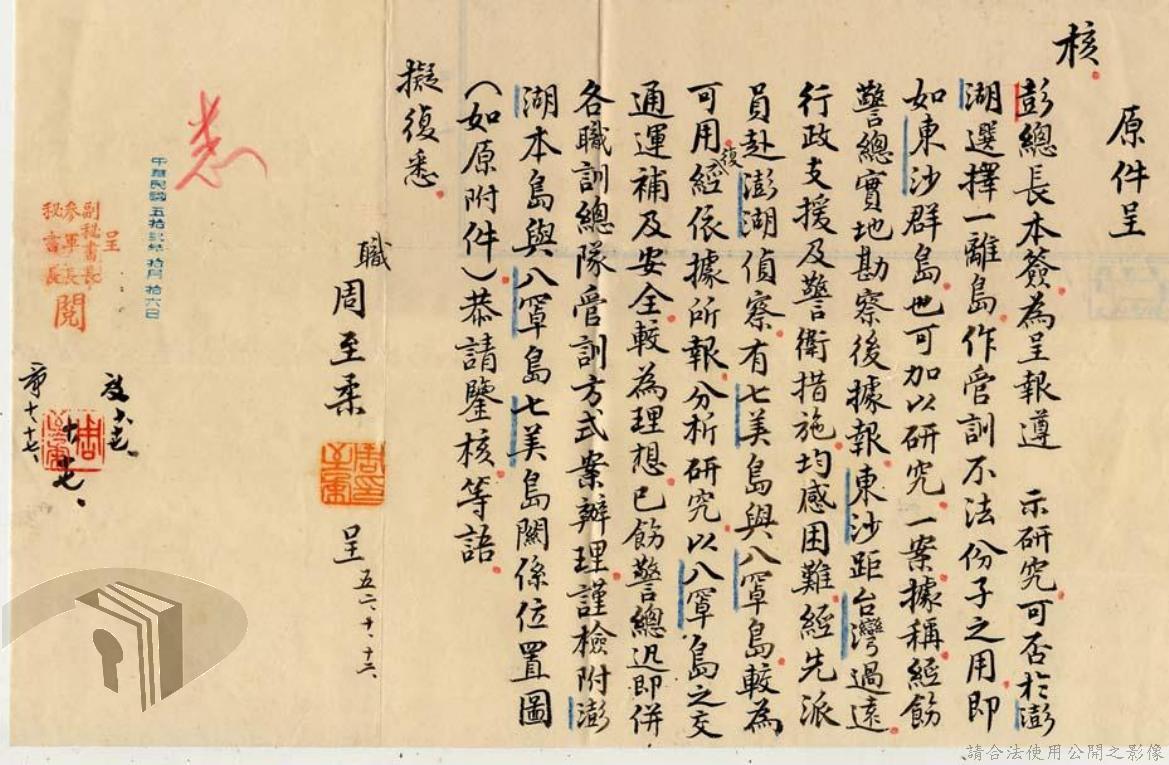 原件呈
核。
彭總長本簽。為呈報遵　示研究。可否於澎
湖選擇一離島。作管訓不法份子之用。即
如東沙群島。也可加以研究。一案。據稱。經飭
警總實地勘察後。據報。東沙距台灣過遠。
行政支援及警衛措施。均感困難。經先派
員赴澎湖偵察。有七美島與八罩島。較為
可用。復經依據所報。分析研究。以八罩島之交
通運補及安全。較為理想。已飭警總迅即併
各職訓總隊管訓方式案辦理。謹檢附澎
湖本島與八罩島七美島關係位置圖
(如原附件)恭請鑒核。等語。
擬復悉。
職 周至柔 呈 五二、十、十六、
周至柔
悉
中華民國五拾貳年拾月拾六日
呈
副秘書長
參軍長
秘書長
閱
十、七、
請合法使用公開之影像